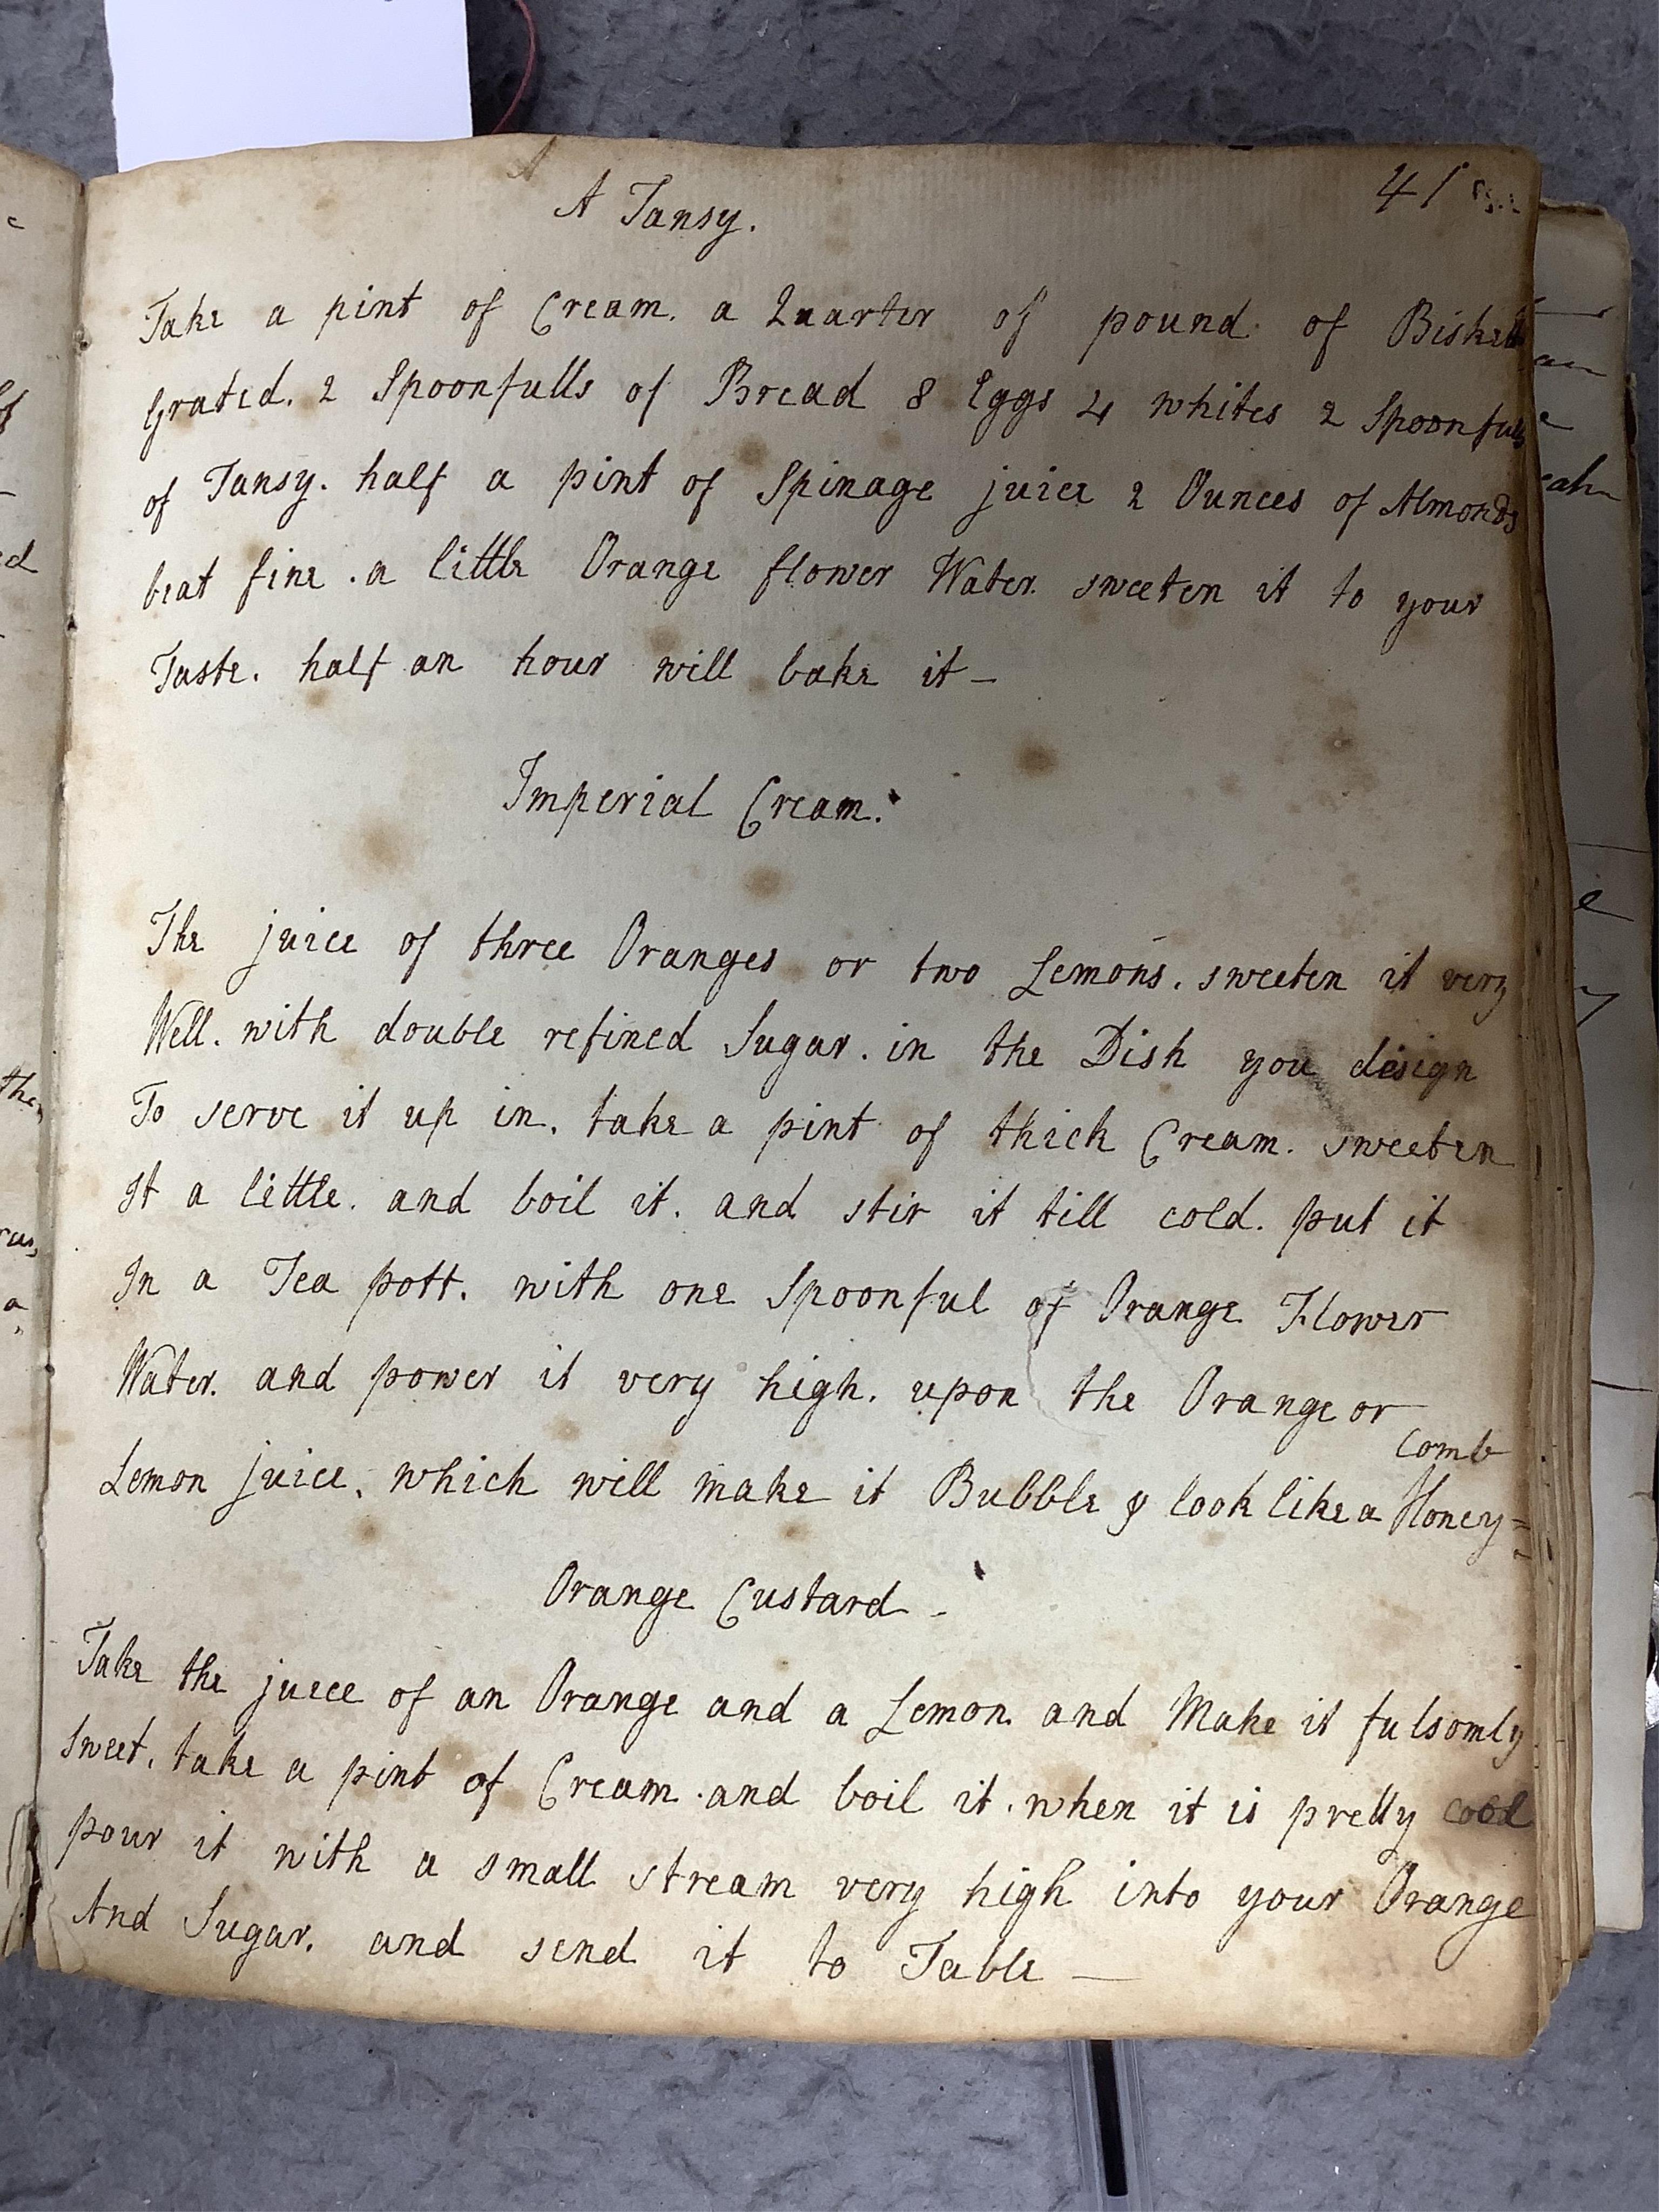 41
A Tansy.
Take a pint of Cream. a Quarter of pound of
Grated. 2 Spoonfulls of Bread 8 Eggs 4 whites 2 Spoonfulls
of Tansy. half a pint of Spinage juice 2 Ounces of Almonds
beat fine. a little Orange flower Water. sweeten it to your
Taste. half an hour will bake it —
Imperial Cream.
The juice of three Oranges or two Lemons. sweeten it very
Well. with double refined Sugar. in the Dish you design
To serve it up in. take a pint of thick Cream. sweeten
It a little. and boil it. and stir it till cold. put it
In a Tea pott. with one Spoonful of Orange Flower
Water. and power it very high. upon the Orange or
Comb
Lemon juice, which will make it Bubble & look like a Honey=
Orange Custard -
Take the juice of an Orange and a Lemon. and Make it fulsomly
Sweet. take a pint of Cream. and boil it. when it is pretty
pour it with a small stream very high into your Orange
And Sugar. and send it to Table —